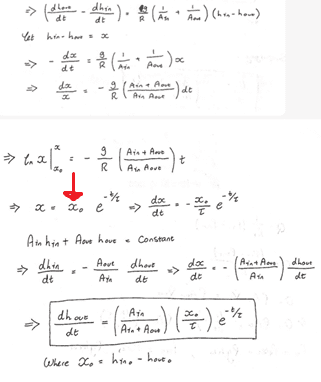 ⇒ (dhout/dt - dhin/dt) = g/R (1/Ain + 1/Aout) (hin - hout)
Let hin - hout = x
⇒ - dx/dt = g/R (1/Ain + 1/Aout) x
⇒ dx/x = - g/R (Ain + Aout / Ain Aout) dt
⇒ ln x |x x₀ = - g/R (Ain + Aout / Ain Aout) t
⇒ x = x₀ e^-t/τ ⇒ dx/dt = - x₀/τ e^-t/τ
Ain hin + Aout hout = Constant
⇒ dhin/dt = - Aout/Ain dhout/dt ⇒ dx/dt = - (Ain + Aout / Ain) dhout/dt
⇒ dhout/dt = (Ain / Ain + Aout) (x₀/τ) e^-t/τ
Where x₀ = hin₀ - hout₀